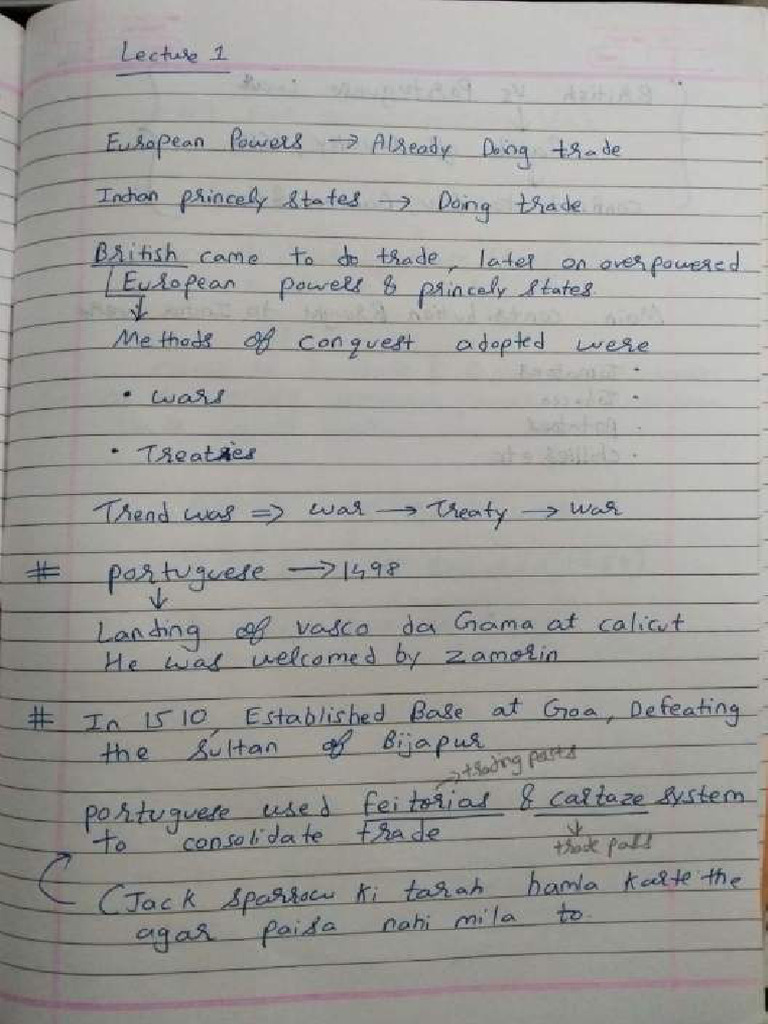 Lecture 1
European Powers → Already Doing trade
Indian princely states → Doing trade
British came to do trade, later on overpowered
European powers & princely states.
↓
Methods of conquest adopted were
• wars
• Treaties
Trend was ⇒ war → Treaty → war
# portuguese → 1498
↓
Landing of vasco da Gama at calicut
He was welcomed by zamorin
# In 1510, Established Base at Goa, Defeating
the Sultan of Bijapur
→ trading posts
portuguese used feitorias & cartaze system
to consolidate trade
↓
trade pass
(Jack sparrow ki tarah hamla karte the
agar paisa nahi mila to.